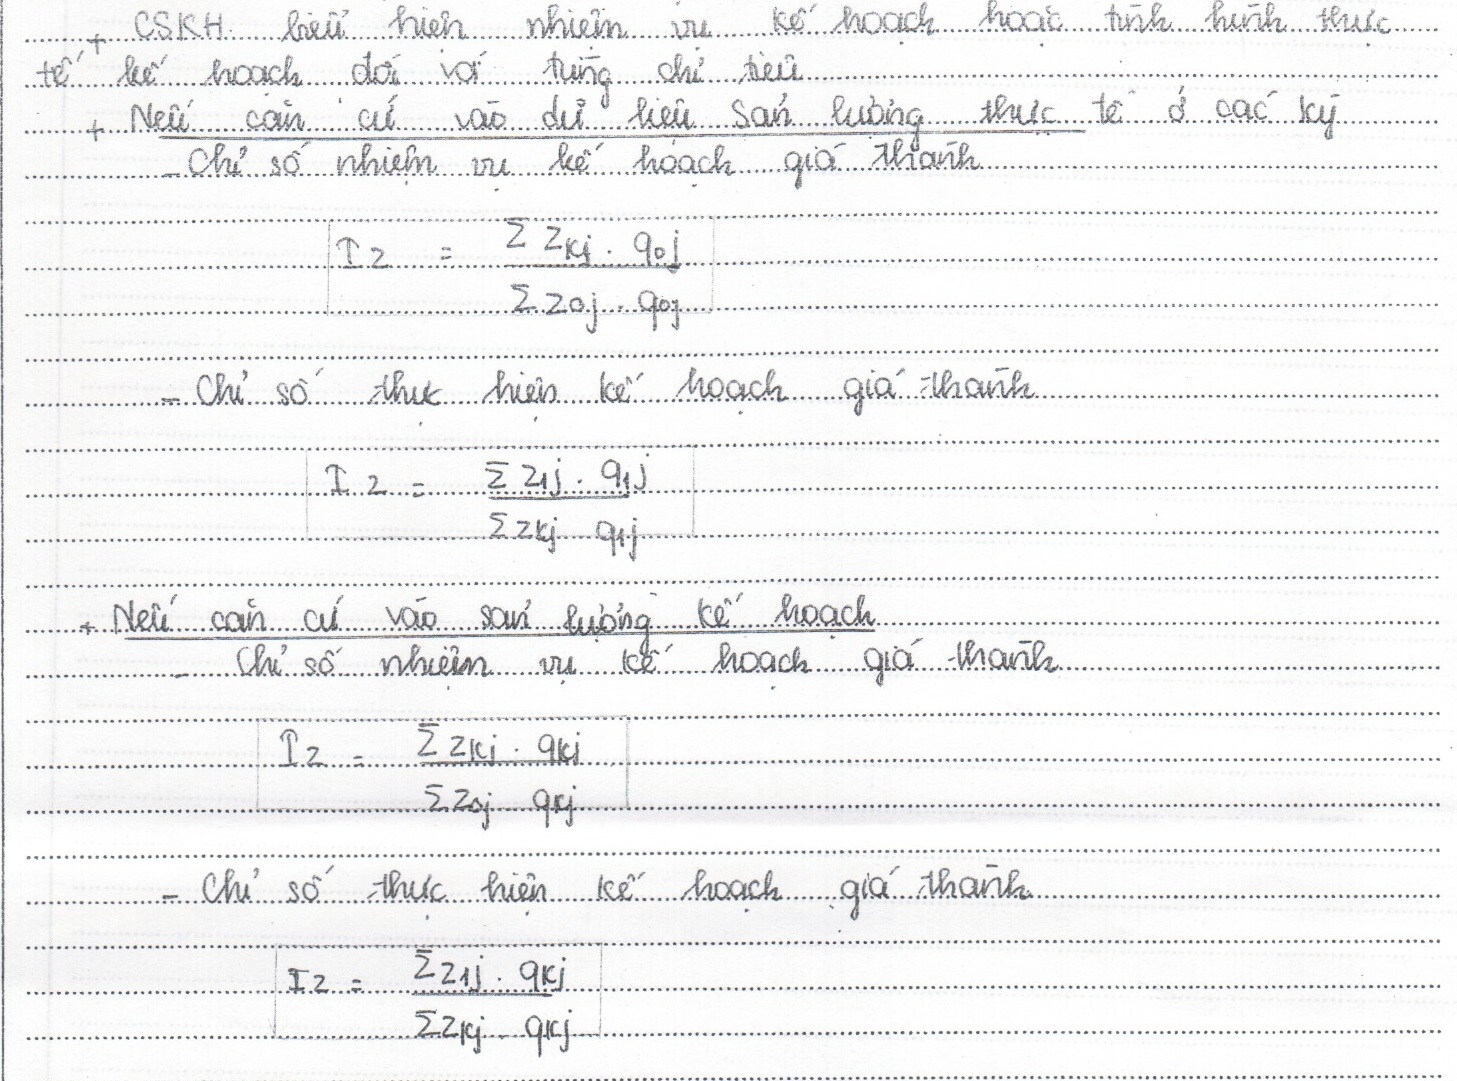 + CSKH biểu hiện nhiệm vụ kế hoạch hoặc tình hình thực
tế kế hoạch đối với từng chỉ tiêu
+ Nếu căn cứ vào dữ liệu sản lượng thực tế ở các kỳ
- Chỉ số nhiệm vụ kế hoạch giá thành
Iz = Σ zkj . q0j
Σ z0j . q0j
- Chỉ số thực hiện kế hoạch giá thành
Iz = Σ z1j . q1j
Σ zkj q1j
+ Nếu căn cứ vào sản lượng kế hoạch
- Chỉ số nhiệm vụ kế hoạch giá thành
Iz = Σ zkj . qkj
Σ z0j qkj
- Chỉ số thực hiện kế hoạch giá thành
Iz = Σ z1j . qkj
Σ zkj . qkj